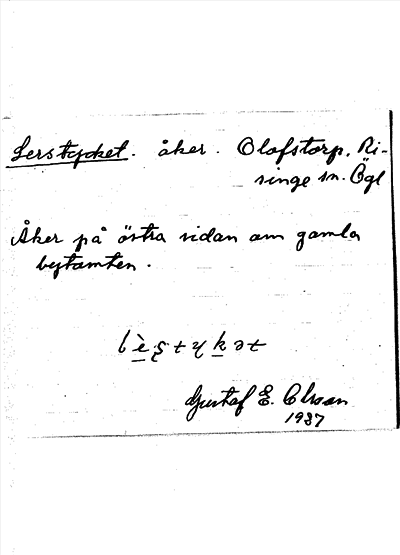 Lerstycket. åker. Olofstorp, Ri-
singe sn. Ögl
Åker på östra sidan om gamla
bytomten.
Gustaf E. Olsson
1937